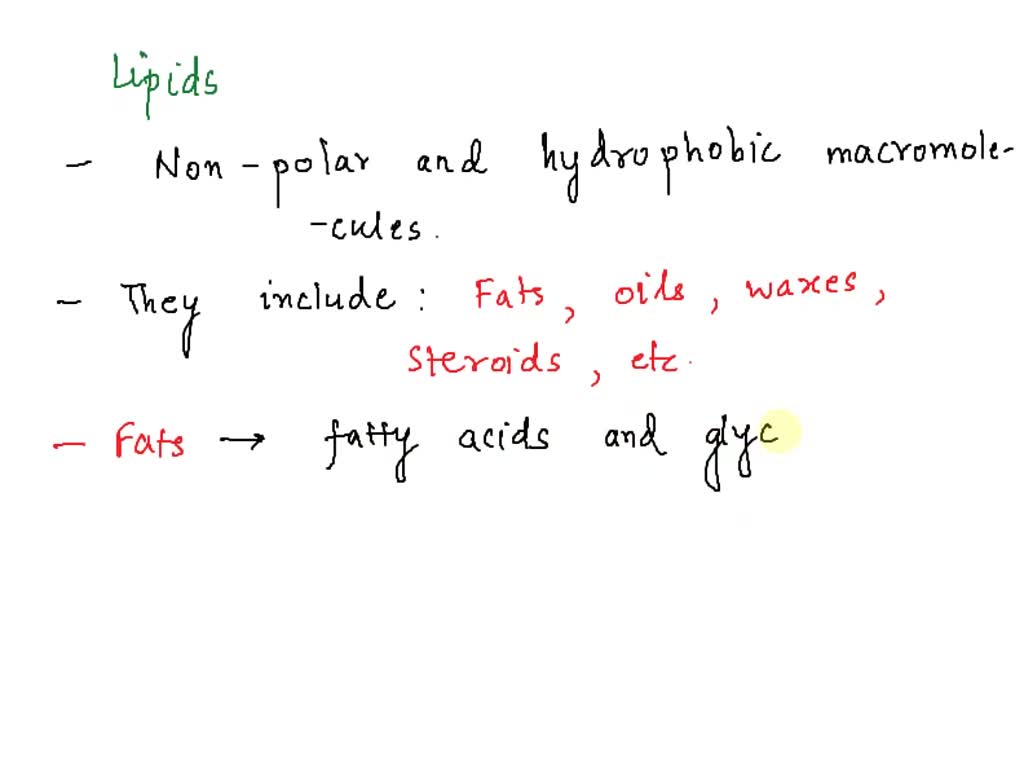 Lipids
- Non-polar and hydrophobic macromole-
-cules.
- They include: Fats, oils, waxes,
Steroids, etc.
- Fats → fatty acids and glyc